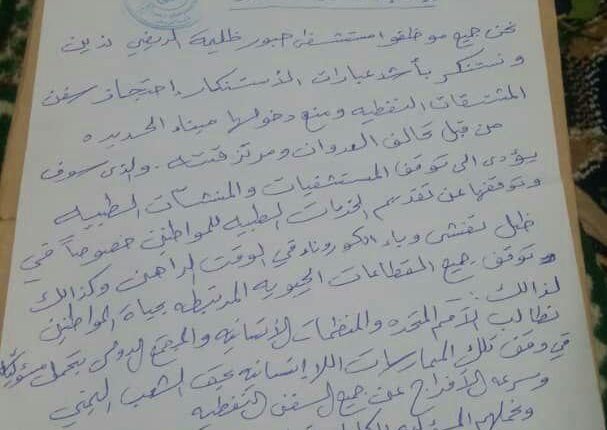 نحن جميع موظفوا مستشفى جبور ظليمه الريفي ندين
ونستنكر بأشد عبارات الأستنكار احتجاز سفن
المشتقات النفطيه ومنع دخولها ميناء الحديده
من قبل تحالف العدوان ومرتزقته . والذي سوف
يؤدي الى توقف المستشفيات والمنشآت الطبيه
وتوقفها عن تقديم الخدمات الطبيه للمواطنين خصوصاً في
ظل تفشي وباء الكورونا في الوقت الراهن وكذالك
توقف جميع القطاعات الحيويه المرتبطه بحياة المواطنين
لذالك :
نطالب الأمم المتحده والمنظمات الأنسانيه والمجتمع الدولي بتحمل مسؤوليتة
في وقف تلك الممارسات اللا انسانيه بحق الشعب اليمني
وسرعه الأفراج عن جميع السفن النفطيه
ونحملهم